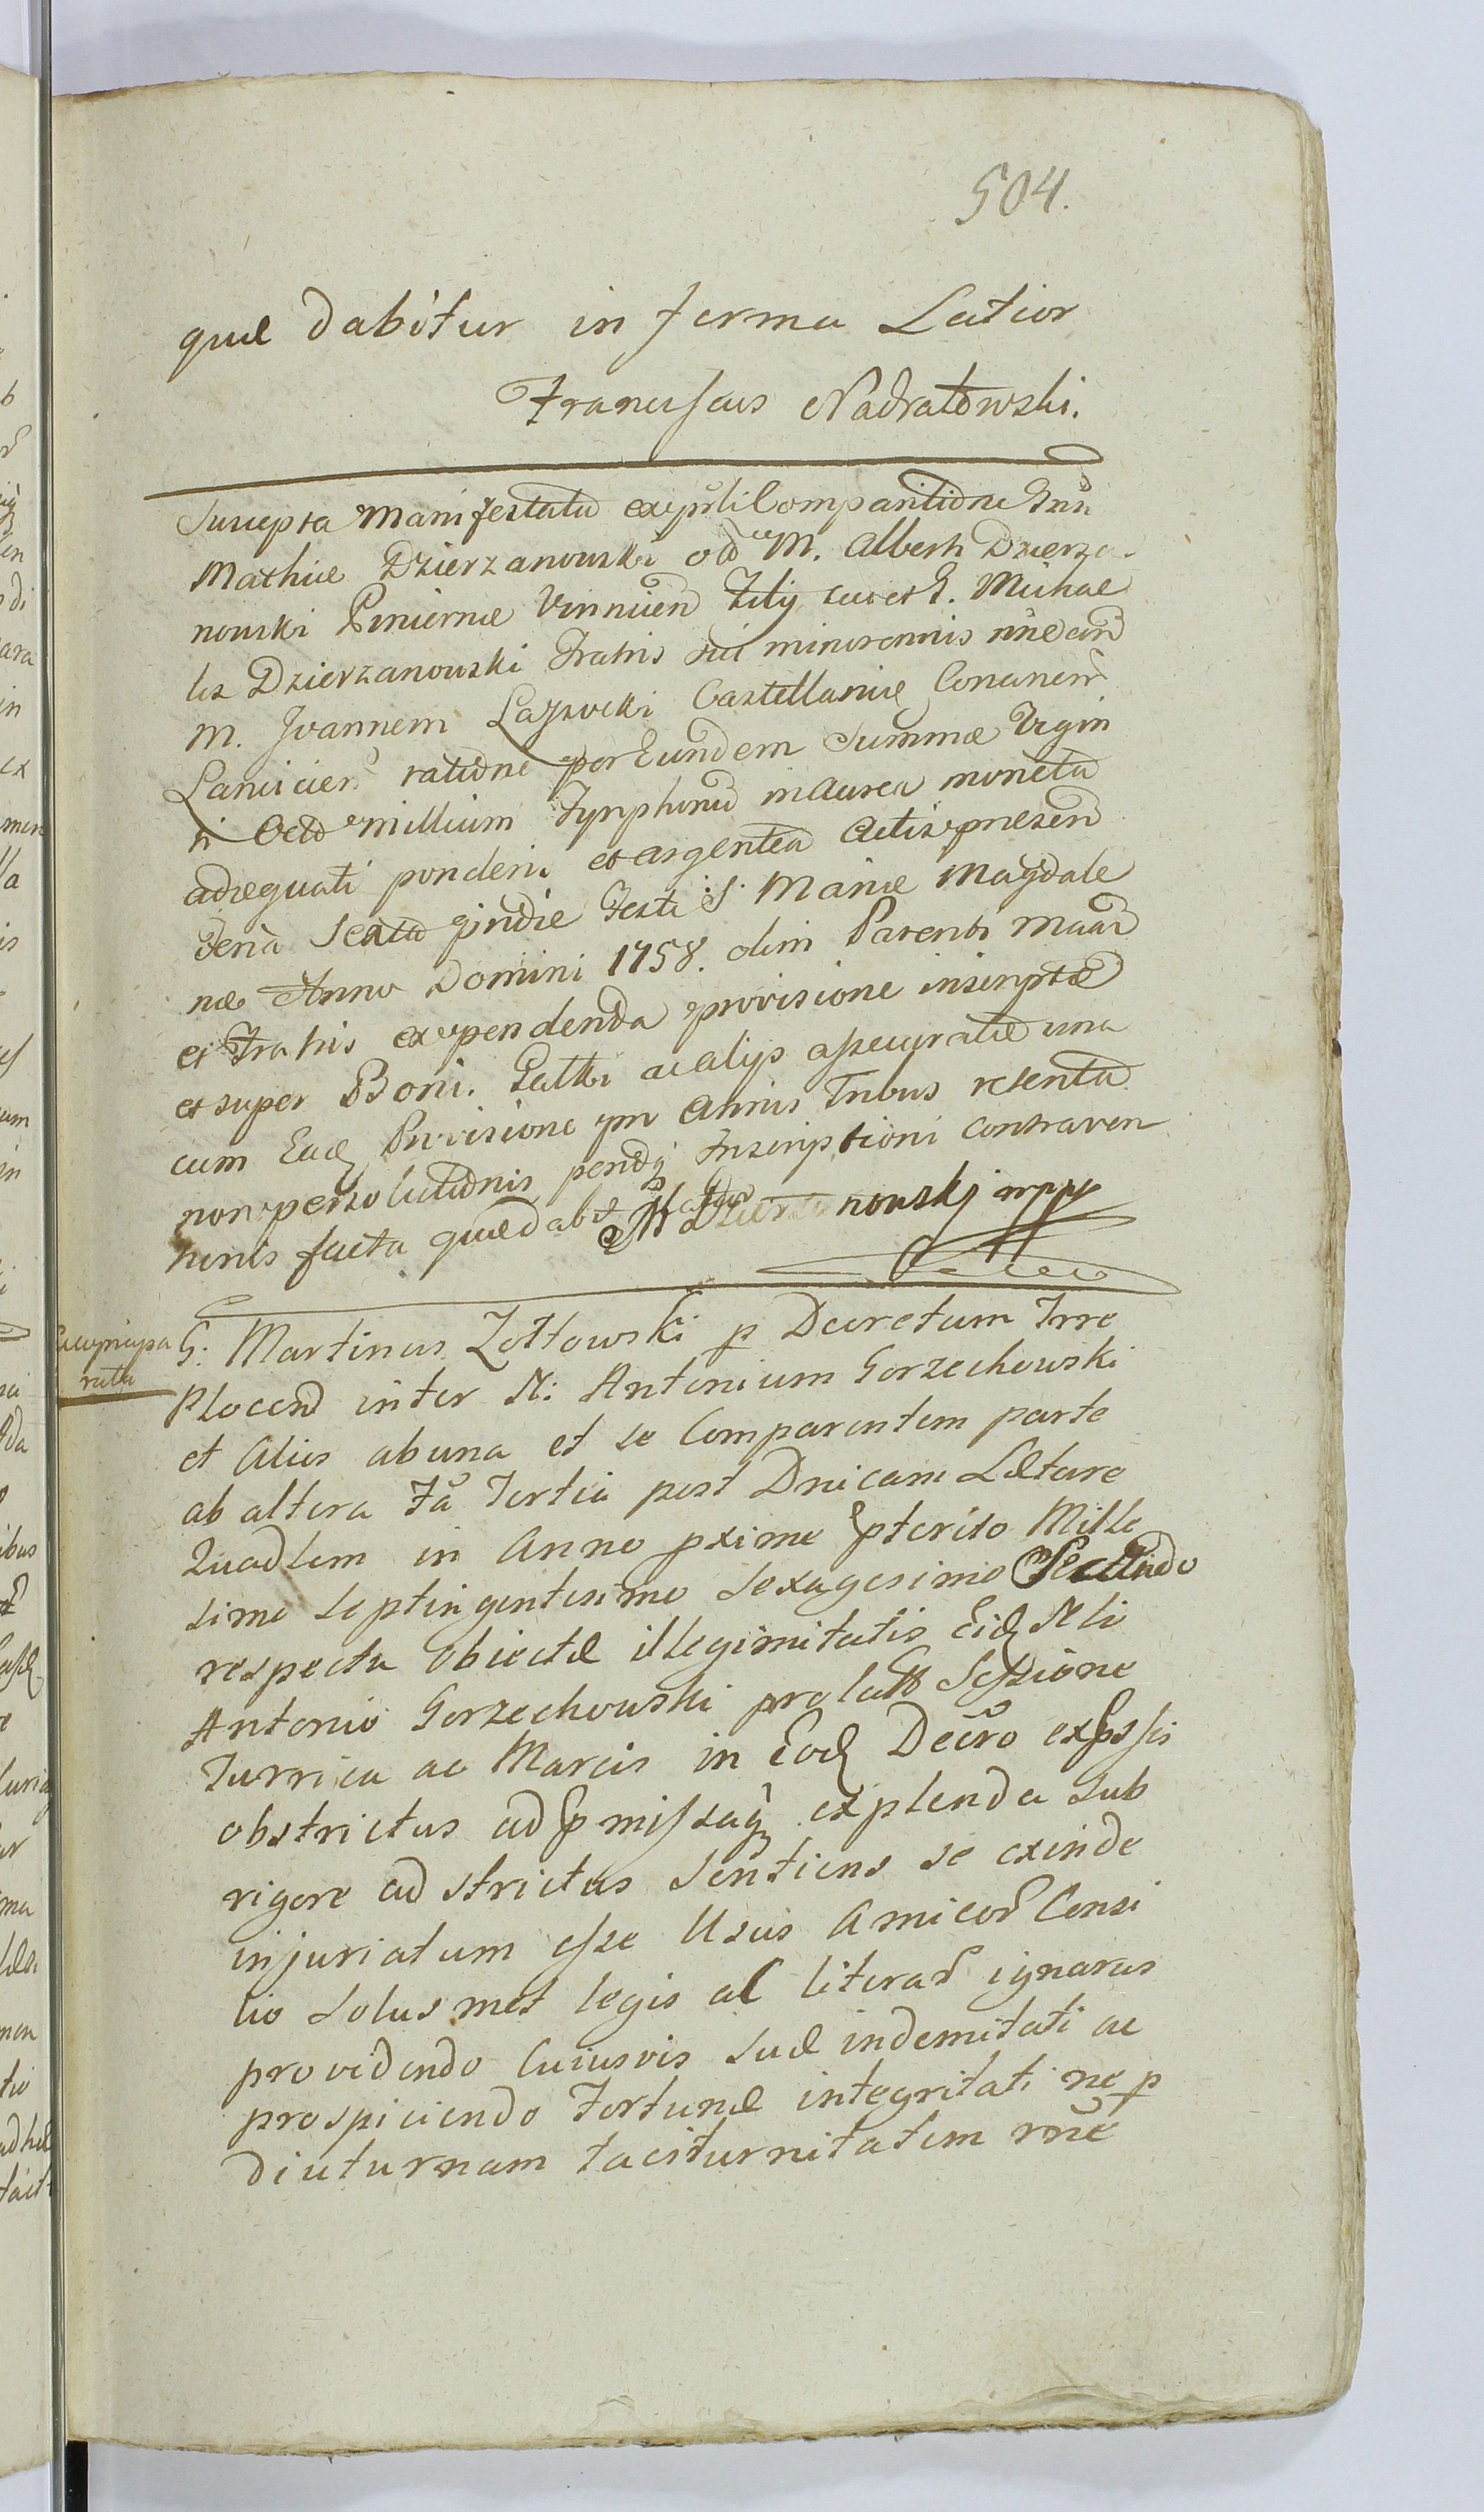 504.
quæ dabitur in forma Latior
Franciscus Nadratowski.
Suscepta Manifestatio ex psli Comparitione Gnsi
Mathiæ Dzierzanowski olim M. Alberti Dzierza
nowski Pincernæ Vinnicen Filij sui et G. Michae
lis Dzierzanowski Fratris sui minorennis
M. Joannem Lassocki Castellaniæ Conanen
ratione per Eundem Summæ Vigin
ti Octo millium Tynphonu in aurea moneta
adæquati ponderis et argentea Actis præsen
Feria Sexta pridie Festi S. Mariæ Magdale
næ Anno Domini 1758. olim Parenti
et Fratris ex pendenda provisione inscriptæ
et super Bonis. ac alijs assecuratæ una
cum Eadq Provisione pro Annis Tribus retenta
non persolutionis Inscriptioni contraven
tionis facta quæ dabit M Dzierzanowski mpp
G: Martinus Zottowski p Decretum Trre
Plocen inter M: Antonium Gorzechowski
et Alios ab una et se Comparentem parte
ab altera Fã Tertia post Dnicam Lætare
Quadlem in Anno pxime pterito Mille
simo septingentesimo sexagesimo Secundo
respectu obiectæ illegimitatis Eidq Mti
Antonio Gorzechowski prolatt Sessione
Turrica ac Marcis in Eodq Decro expssis
obstrictus ad pmissaq explenda sub
rigore ad strictus sentiens se exinde
injuriatum esse Usus Amicor Consi
lio solus met legis ac literar ignarus
providendo Cuiusvis suæ indemitati ac
prospiciendo Fortunæ integritati ne p
diuturnam taciturnitatem rõne